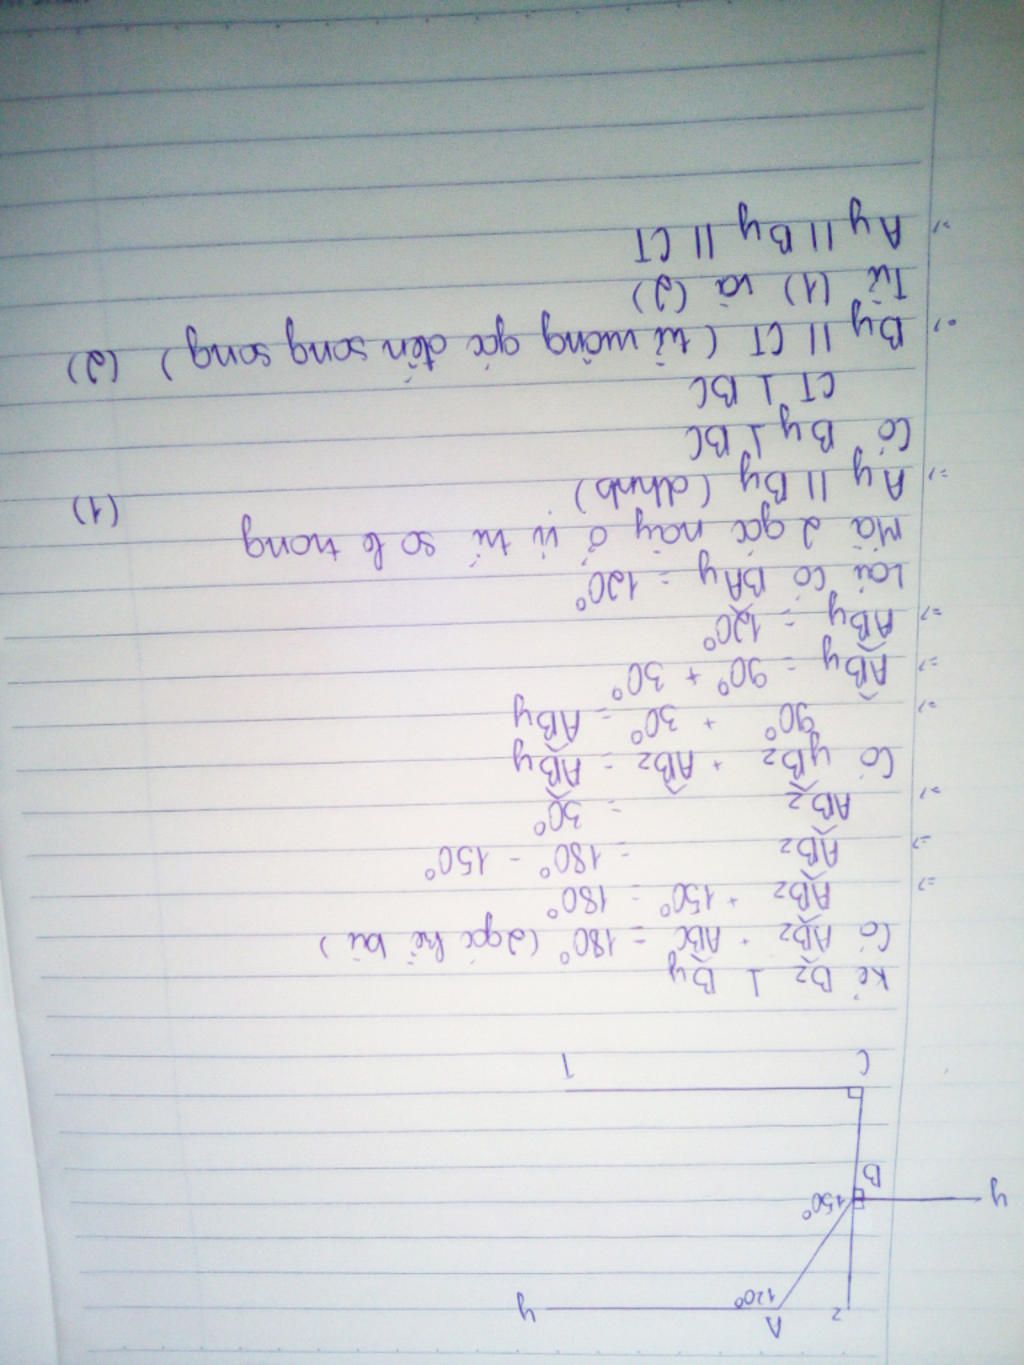 A
z
120°
y
y
150°
B
C
T
Kẻ Bz ⊥ By
Có ABz + ABC = 180° (2 góc kề bù)
=> ABz + 150° = 180°
=> ABz = 180° - 150°
=> ABz = 30°
Có yBz + ABz = ABy
=> 90° + 30° = ABy
=> ABy = 90° + 30°
=> ABy = 120°
Lại có BAy = 120°
Mà 2 góc này ở vị trí so le trong
=> Ay || By (dhnb) (1)
Có By ⊥ BC
CT ⊥ BC
=> By || CT (từ vuông góc đến song song) (2)
Từ (1) và (2)
=> Ay || By || CT